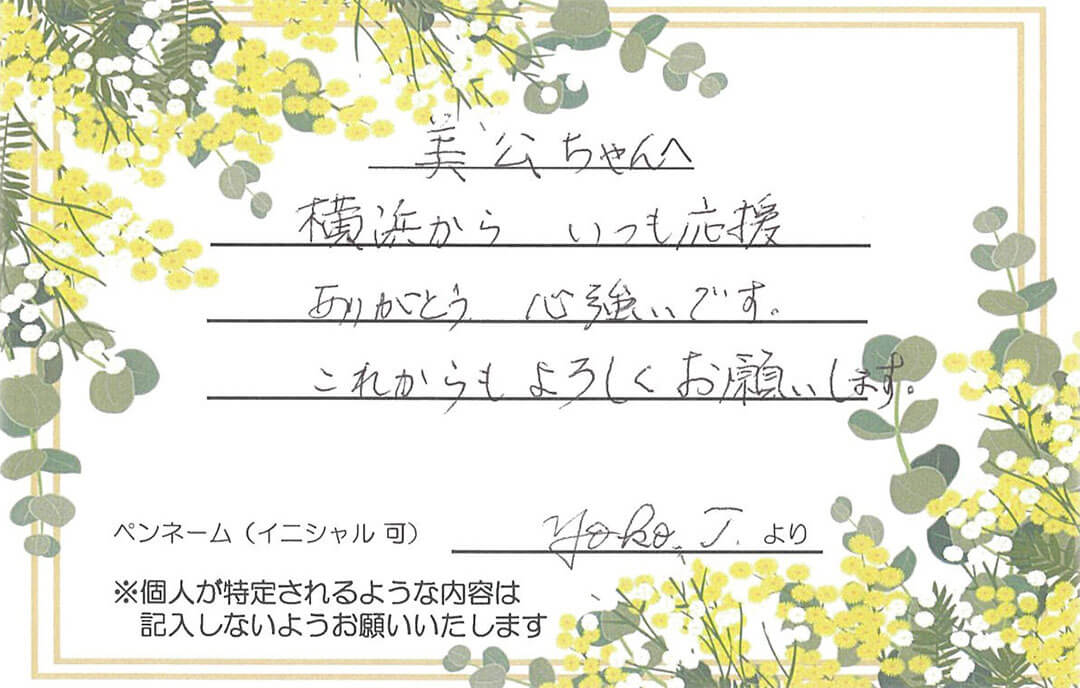 美公ちゃんへ
横浜から いつも応援
ありがとう 心強いです。
これからもよろしくお願いします。
ペンネーム（イニシャル 可） Yoko. J. より
※個人が特定されるような内容は
記入しないようお願いいたします